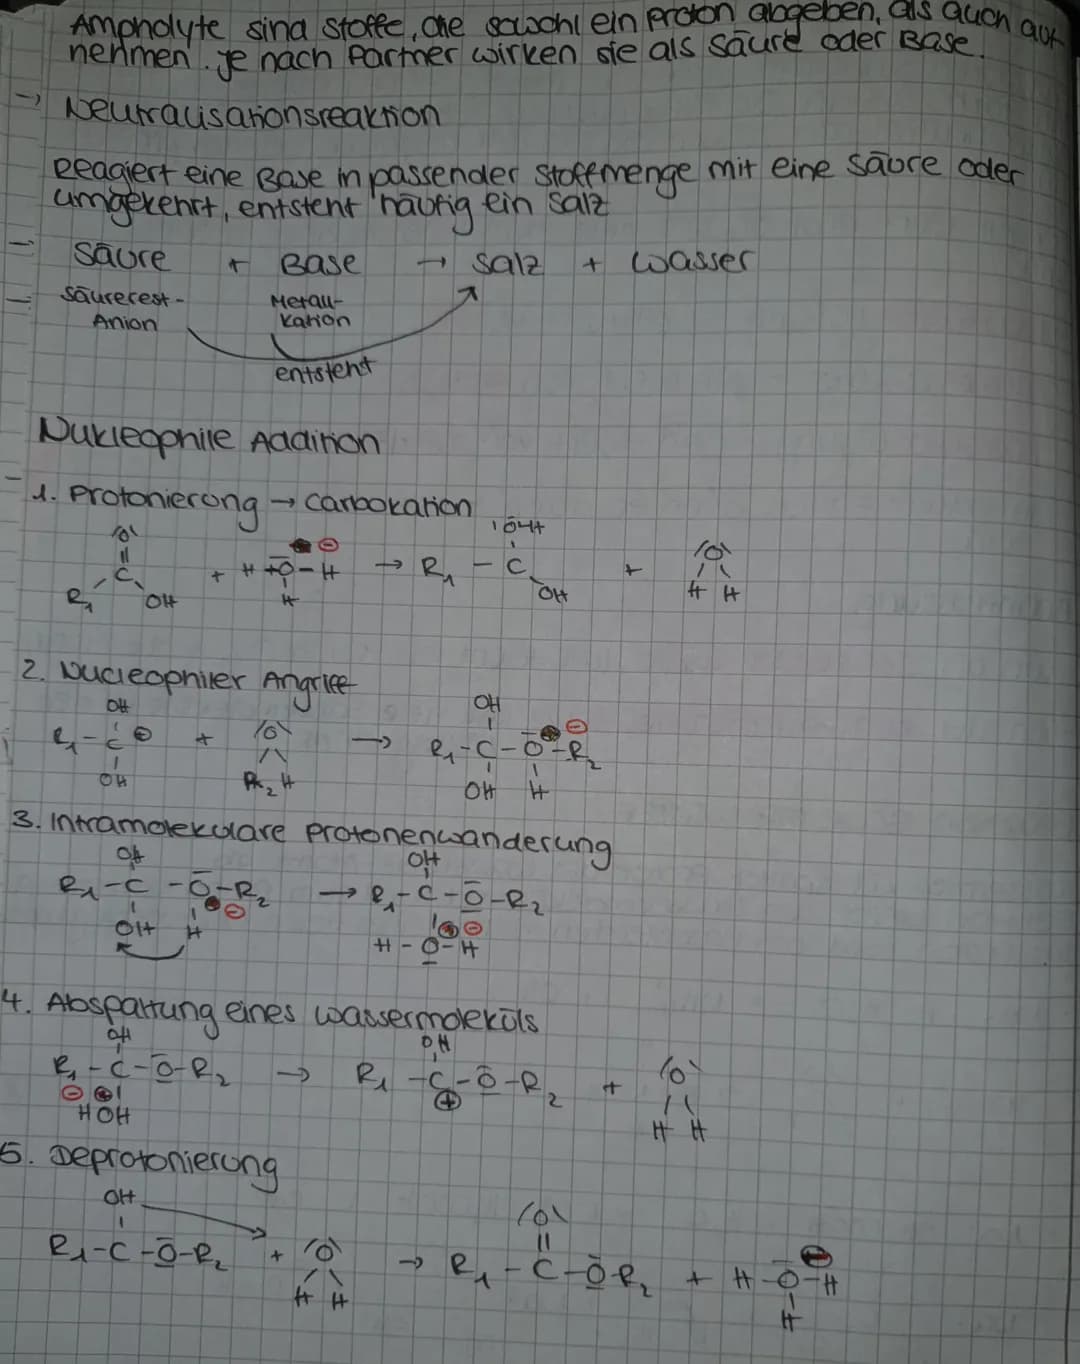 Ampholyte sind Stoffe, die sowohl ein Proton abgeben, als auch auf
nehmen. Je nach Partner wirken sie als Säure oder Base.
→ Neutralisationsreaktion
Reagiert eine Base in passender Stoffmenge mit eine Säure oder
umgekehrt, entsteht häufig ein Salz
Säure + Base → Salz + Wasser
Säurerest- Metall-
Anion Kation
entsteht
Nukleophile Addition
1. Protonierung → Carbokation
|O| IOH
|| |
R₁ - C - OH + H - O - H ⊖ → R₁ - C - OH + |O|
H H H
2. Nucleophiler Angriff
OH OH
R₁ - C ⊕ + |O| → R₁ - C - O - R₂ ⊖
OH R₂ H OH H
3. Intramolekulare Protonenwanderung
OH OH
R₁ - C - O - R₂ → R₁ - C - O - R₂
OH H ⊖ H - O - H ⊖
4. Abspaltung eines Wassermoleküls
OH OH
R₁ - C - O - R₂ → R₁ - C - O - R₂ + |O|
⊖ ⊕ ⊕ H H
HOH
5. Deprotonierung
OH |O|
R₁ - C - O - R₂ + |O| → R₁ - C - O - R₂ + H - O - H
H H H